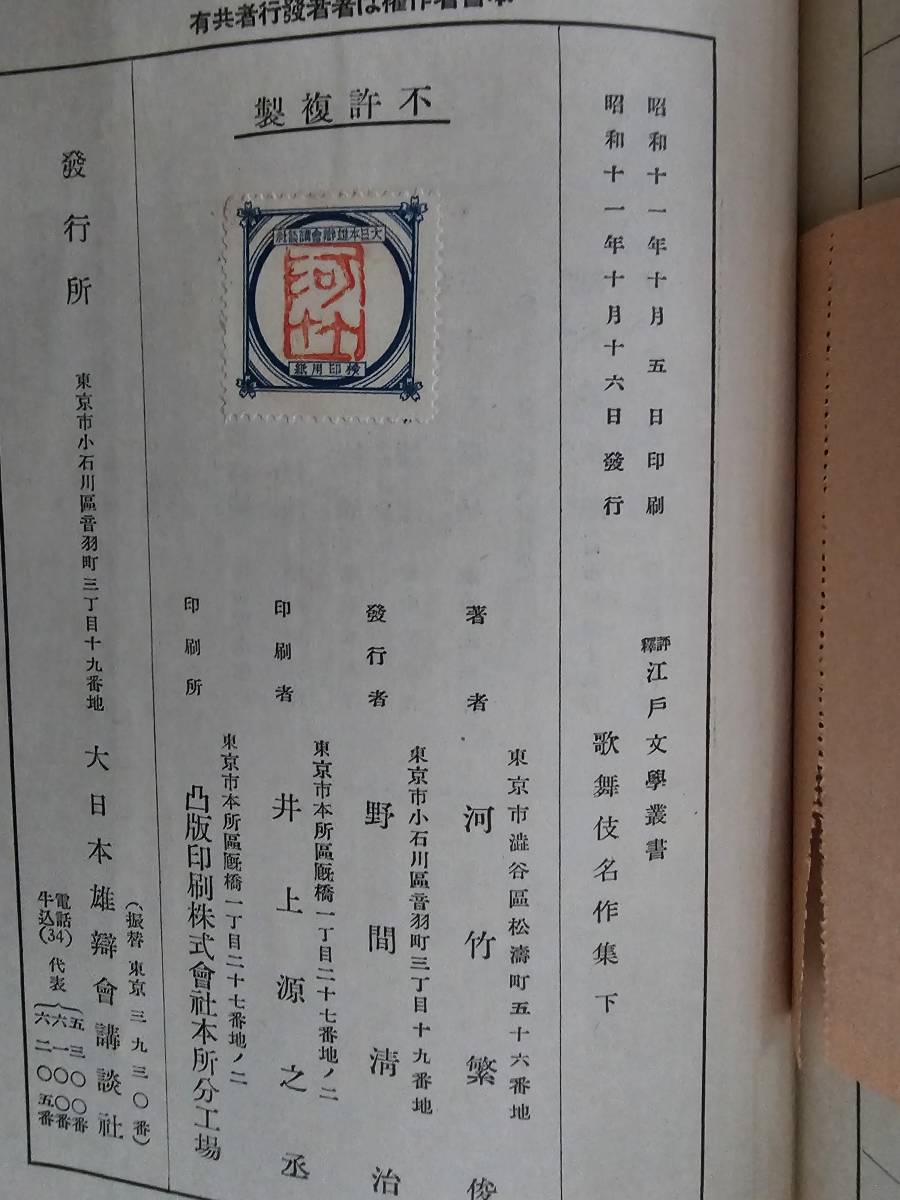 有共者行發者著は權作著書
昭和十一年十月五日印刷
昭和十一年十月十六日發行
評釋江戸文學叢書
歌舞伎名作集 下
不許複製
大日本雄辯會講談社
河竹
檢印用紙
著者
東京市澁谷區松濤町五十六番地
河竹繁俊
發行者
東京市小石川區音羽町三丁目十九番地
野間淸治
印刷者
東京市本所區厩橋一丁目二十七番地ノ二
井上源之丞
印刷所
東京市本所區厩橋一丁目二十七番地ノ二
凸版印刷株式會社本所分工場
發行所
東京市小石川區音羽町三丁目十九番地
大日本雄辯會講談社
(振替東京三九三〇番)
電話牛込(34)代表
五三〇〇番
六一〇〇番
六二〇五番